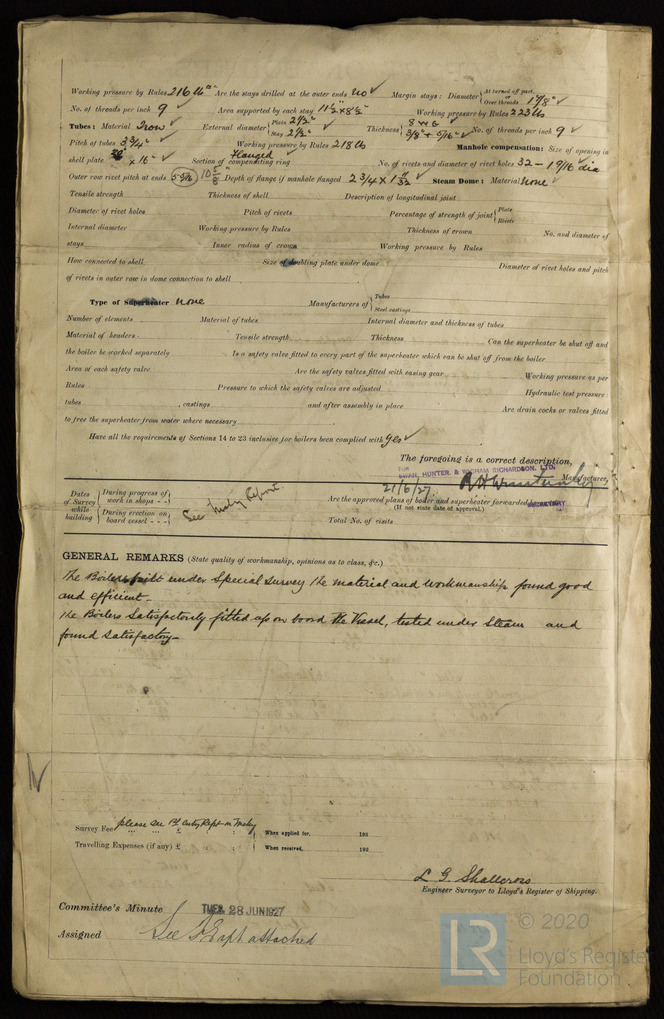 Working pressure by Rules 216 lb Are the stays drilled at the outer ends No Margin stays: Diameter { At turned off part, or Over threads 1 7/8"
No. of threads per inch 9 Area supported by each stay 11 1/2" x 8 1/2" Working pressure by Rules 223 lb
Tubes: Material Iron External diameter { Plain 2 1/2" Stay 2 1/2" Thickness { 8 W G 3/8" + 5/16" No. of threads per inch 9
Pitch of tubes 3 3/4" Working pressure by Rules 218 lb Manhole compensation: Size of opening in
shell plate x 16" Section of compensating ring Flanged No. of rivets and diameter of rivet holes 32 - 1 9/16 dia
Outer row rivet pitch at ends 10 5/8" Depth of flange if manhole flanged 2 3/4 x 1 11/32 Steam Dome: Material None
Tensile strength Thickness of shell Description of longitudinal joint
Diameter of rivet holes Pitch of rivets Percentage of strength of joint { Plate Rivets
Internal diameter Working pressure by Rules Thickness of crown No. and diameter of
stays Inner radius of crown Working pressure by Rules
How connected to shell Size of doubling plate under dome Diameter of rivet holes and pitch
of rivets in outer row in dome connection to shell
Type of Superheater None Manufacturers of { Tubes Steel castings
Number of elements Material of tubes Internal diameter and thickness of tubes
Material of headers Tensile strength Thickness Can the superheater be shut off and
the boiler be worked separately Is a safety valve fitted to every part of the superheater which can be shut off from the boiler
Area of each safety valve Are the safety valves fitted with easing gear Working pressure as per
Rules Pressure to which the safety valves are adjusted Hydraulic test pressure:
tubes , castings and after assembly in place Are drain cocks or valves fitted
to free the superheater from water where necessary
Have all the requirements of Sections 14 to 23 inclusive for boilers been complied with Yes
The foregoing is a correct description,
FOR SWAN, HUNTER, & WIGHAM RICHARDSON, LTD.
Manufacturer.
SECRETARY
Dates of Survey while building { During progress of work in shops - - { During erection on board vessel - - - { See Mchy Report
21/6/27. Are the approved plans of boiler and superheater forwarded herewith
(If not state date of approval.)
Total No. of visits
GENERAL REMARKS (State quality of workmanship, opinions as to class, &c.)
The Boilers built under Special Survey the material and workmanship found good
and efficient.
The Boilers Satisfactorily fitted up on board the Vessel, tested under Steam and
found satisfactory.
Survey Fee ... ... £ : : { When applied for, 192
please see 1st Entry Rept on Mchy
Travelling Expenses (if any) £ : : { When received, 192
L. G. Shallcross
Engineer Surveyor to Lloyd's Register of Shipping.
Committee's Minute TUES. 28 JUN 1927
Assigned See F.E. rpt attached
© 2020
LR Lloyd's Register
Foundation